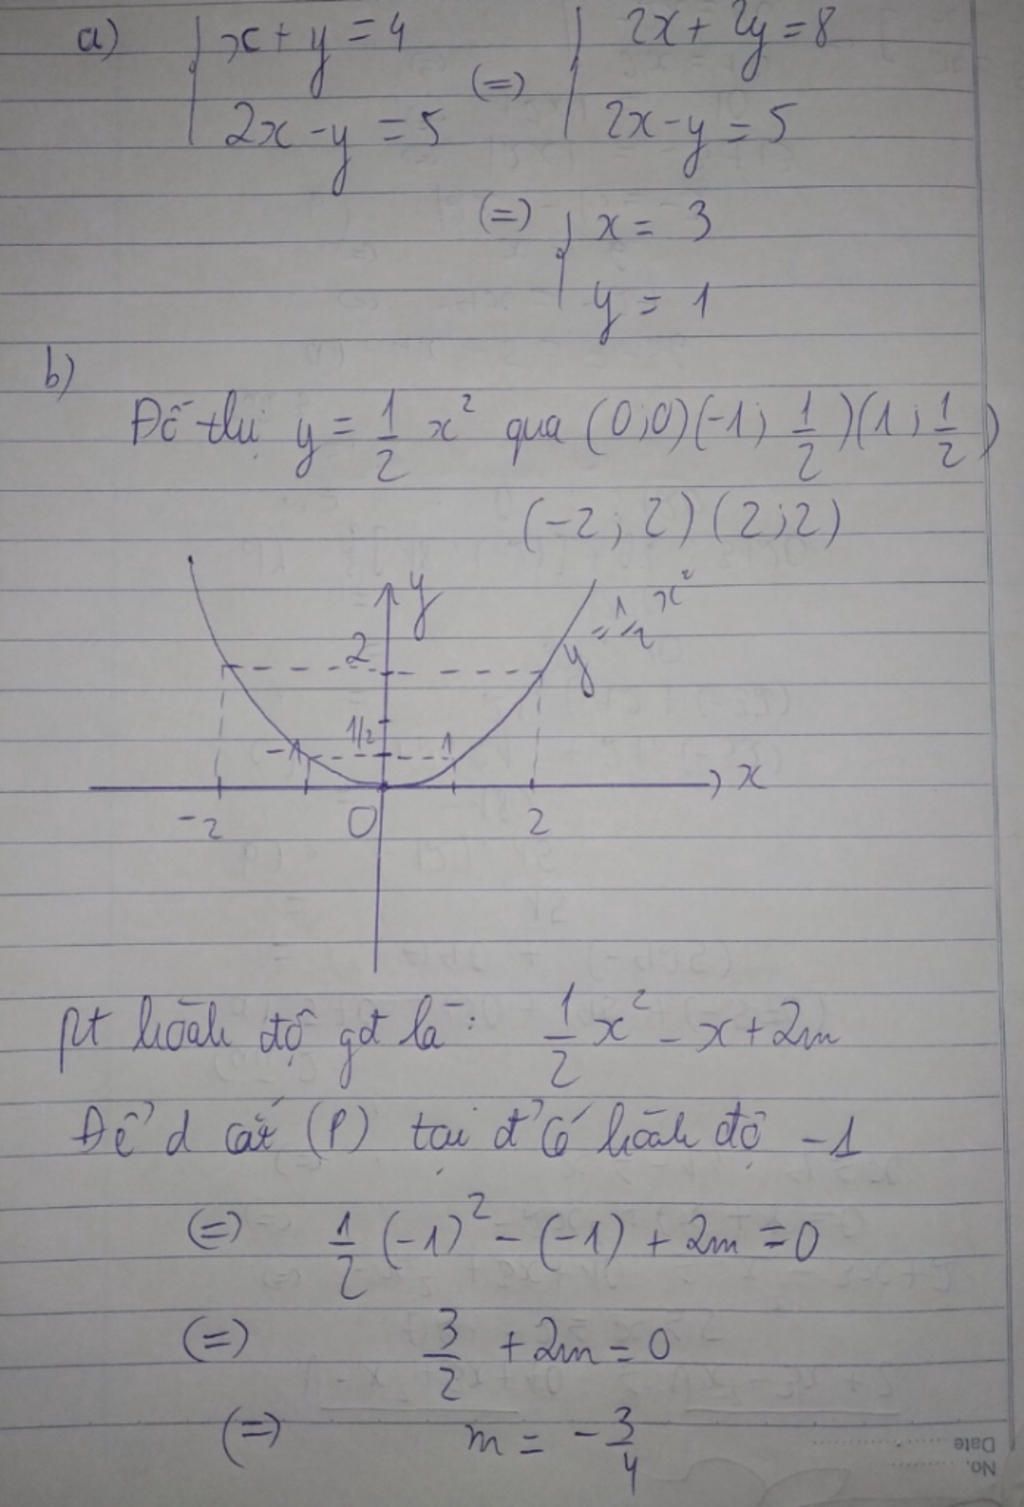 a) { x + y = 4 (=) { 2x + 2y = 8
2x - y = 5 2x - y = 5
(=) { x = 3
y = 1
b)
Đồ thị y = 1/2 x² qua (0;0) (-1; 1/2) (1; 1/2)
(-2; 2) (2; 2)
y
y = 1/2 x²
2
1/2
-1 1
x
-2 0 2
pt hoành độ gđ là: 1/2 x² - x + 2m
Để d cắt (P) tại đ' có hoành độ -1
(=) 1/2 (-1)² - (-1) + 2m = 0
(=) 3/2 + 2m = 0
(=) m = -3/4
Date
No.